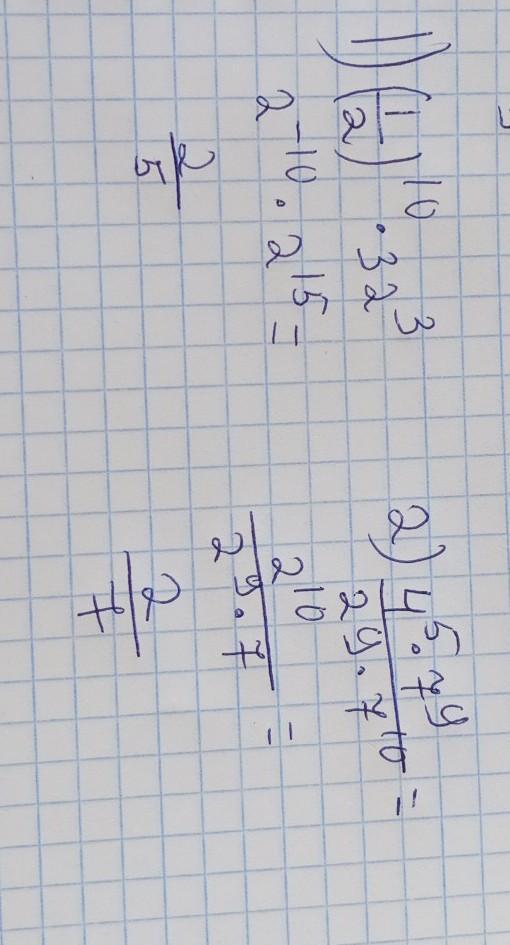 1) (1/2)^10 · 32^3
2^-10 · 2^15 =
2/5
2) 4^5 · 7^9 / 2^9 · 7^10 =
2^10 / 2^9 · 7 =
2/7